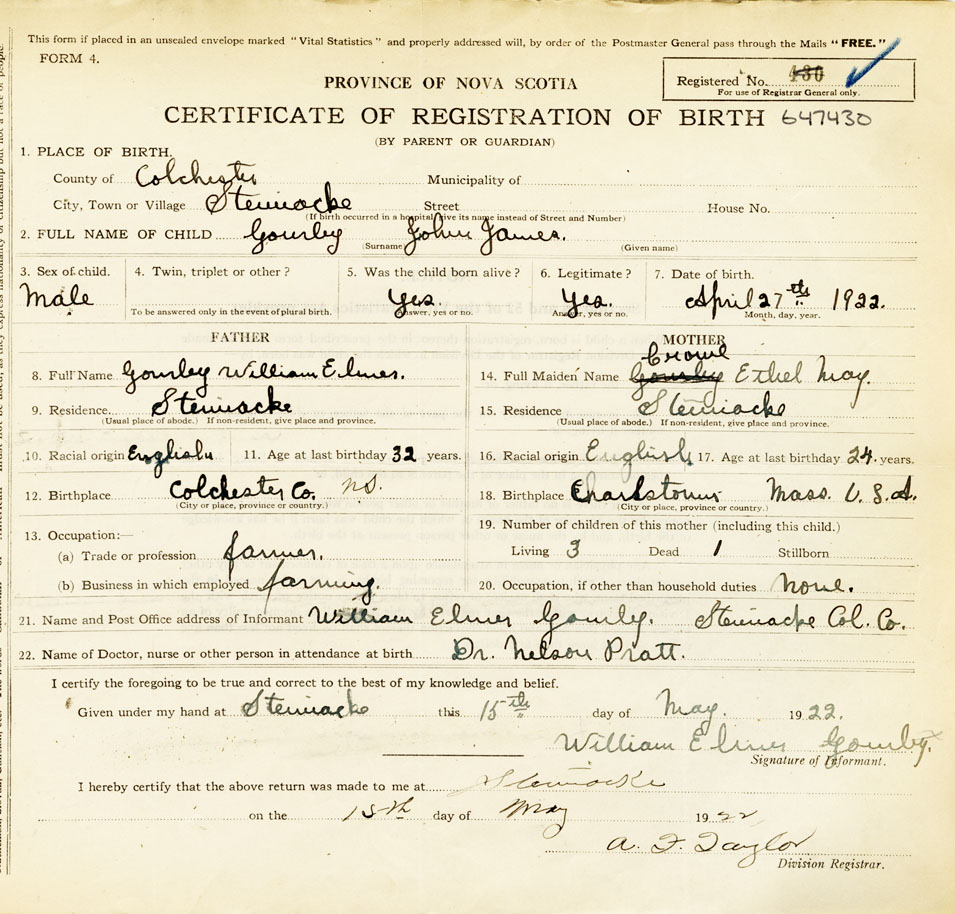 This form if placed in an unsealed envelope marked "Vital Statistics" and properly addressed will, by order of the Postmaster General pass through the Mails "FREE."
FORM 4.
PROVINCE OF NOVA SCOTIA
Registered No. 430
For use of Registrar General only.
CERTIFICATE OF REGISTRATION OF BIRTH 647430
(BY PARENT OR GUARDIAN)
1. PLACE OF BIRTH.
County of Colchester Municipality of
City, Town or Village Stewiacke Street House No.
(If birth occurred in a hospital, give its name instead of Street and Number)
2. FULL NAME OF CHILD Gourley John James.
(Surname) (Given name)
3. Sex of child. 4. Twin, triplet or other? 5. Was the child born alive? 6. Legitimate? 7. Date of birth.
Male Yes. Yes. April 27th 1922.
To be answered only in the event of plural birth. Answer, yes or no. Answer, yes or no. Month, day, year.
FATHER
8. Full Name Gourley William Elmer.
9. Residence Stewiacke
(Usual place of abode.) If non-resident, give place and province.
10. Racial origin English 11. Age at last birthday 32 years.
12. Birthplace Colchester Co. N.S.
(City or place, province or country.)
13. Occupation:—
(a) Trade or profession farmer.
(b) Business in which employed farming.
MOTHER
Crowe
14. Full Maiden Name Gourley Ethel May.
15. Residence Stewiacke
(Usual place of abode.) If non-resident, give place and province.
16. Racial origin English 17. Age at last birthday 24 years.
18. Birthplace Charlstown Mass. U.S.A.
(City or place, province or country.)
19. Number of children of this mother (including this child.)
Living 3 Dead 1 Stillborn
20. Occupation, if other than household duties None.
21. Name and Post Office address of Informant William Elmer Gourley. Stewiacke Col. Co.
22. Name of Doctor, nurse or other person in attendance at birth Dr. Nelson Pratt.
I certify the foregoing to be true and correct to the best of my knowledge and belief.
Given under my hand at Stewiacke this 15th day of May. 1922.
William Elmer Gourley.
Signature of Informant.
I hereby certify that the above return was made to me at Stewiacke
on the 15th day of May 1922
A. F. Taylor
Division Registrar.